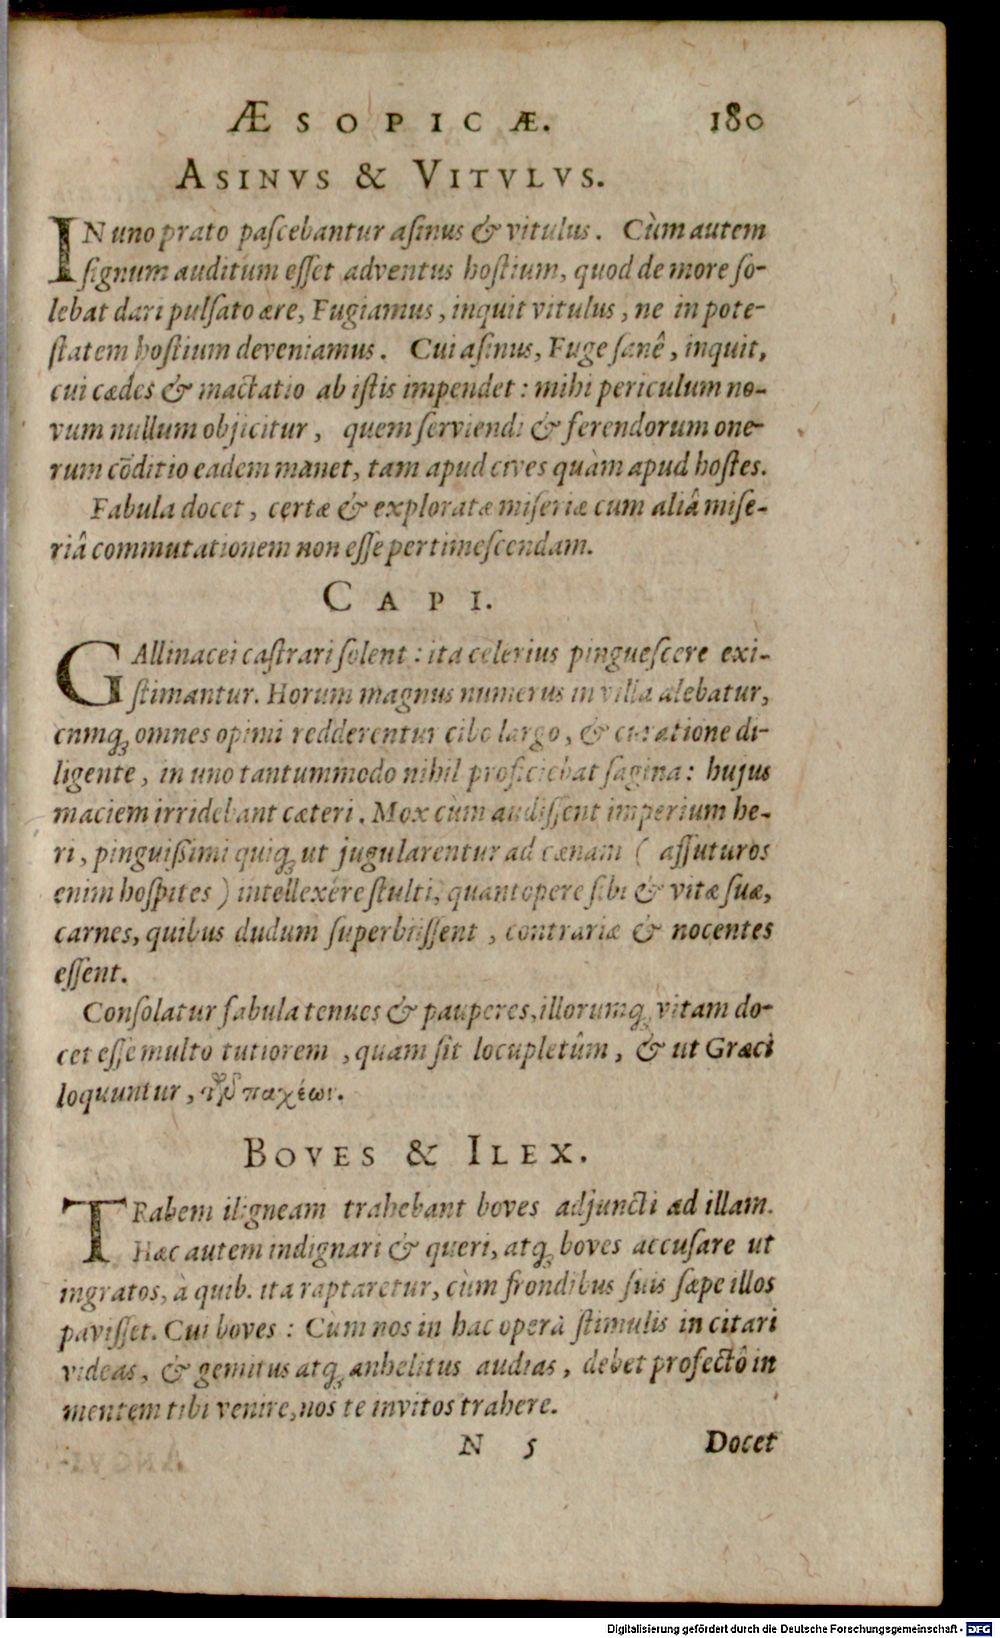 ÆSOPICÆ. 180
ASINVS & VITVLVS.
IN uno prato pascebantur asinus & vitulus. Cùm autem
signum auditum esset adventus hostium, quod de more so-
lebat dari pulsato ære, Fugiamus, inquit vitulus, ne in pote-
statem hostium deveniamus. Cui asinus, Fuge sanê, inquit,
cui cædes & mactatio ab istis impendet: mihi periculum no-
vum nullum objicitur, quem serviendi & ferendorum one-
rum cōditio eadem manet, tam apud cives quàm apud hostes.
Fabula docet, certæ & exploratæ miseriæ cum aliâ mise-
riâ commutationem non esse pertimescendam.
CAPI.
GAllinacei castrari solent: ita celerius pinguescere exi-
stimantur. Horum magnus numerus in villa alebatur,
cnmq; omnes opimi redderentur cibo largo, & curatione di-
ligente, in uno tantummodo nihil proficiebat sagina: hujus
maciem irridebant cæteri. Mox cùm audissent imperium he-
ri, pinguissimi quiq; ut jugularentur ad cænam ( affuturos
enim hospites ) intellexêre stulti, quantopere sibi & vitæ suæ,
carnes, quibus dudum superbiissent, contrariæ & nocentes
essent.
Consolatur fabula tenues & pauperes, illorumq; vitam do-
cet esse multo tutiorem, quam sit locupletûm, & ut Græci
loquuntur, τῶν παχέων.
BOVES & ILEX.
TRabem iligneam trahebant boves adjuncti ad illam.
Hæc autem indignari & queri, atq; boves accusare ut
ingratos, à quib. ita raptaretur, cùm frondibus suis sæpe illos
pavisset. Cui boves: Cum nos in hac operâ stimulis incitari
videas, & gemitus atq; anhelitus audias, debet profectô in
mentem tibi venire, nos te invitos trahere.
N 5 Docet
Digitalisierung gefördert durch die Deutsche Forschungsgemeinschaft - DFG